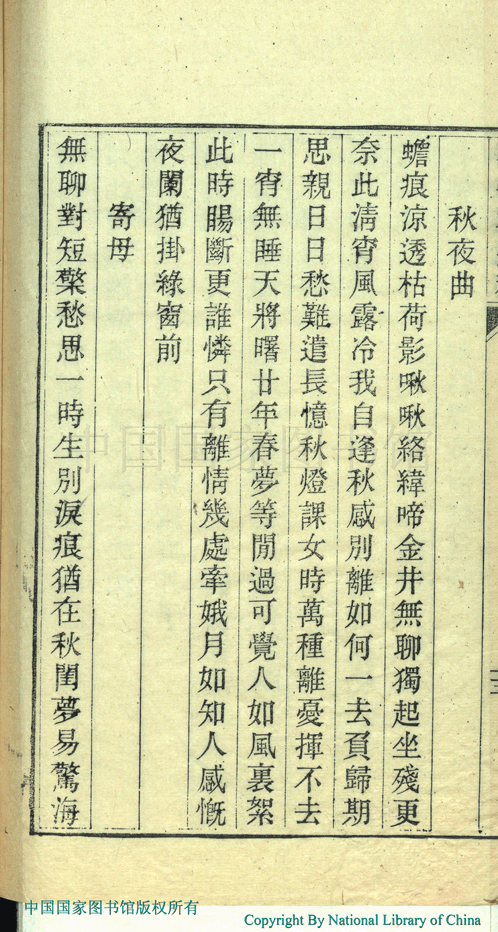 秋夜曲
蟾痕涼透枯荷影啾啾絡緯啼金井無聊獨起坐殘更
奈此淸宵風露冷我自逢秋感別離如何一去負歸期
思親日日愁難遣長憶秋燈課女時萬種離憂揮不去
一宵無睡天將曙廿年春夢等閒過可覺人如風裏絮
此時腸斷更誰憐只有離情幾處牽娥月如知人感慨
夜闌猶掛綠窗前
寄母
無聊對短檠愁思一時生別淚痕猶在秋閨夢易驚海
中国国家图书馆版权所有
Copyright By National Library of China